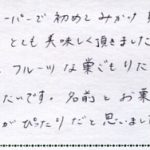 ーパーで初めてみかけ
とても美味しく頂きました
、フルーツな巣ごもりた
たいです。名前とお菓
がぴったりだと思いました